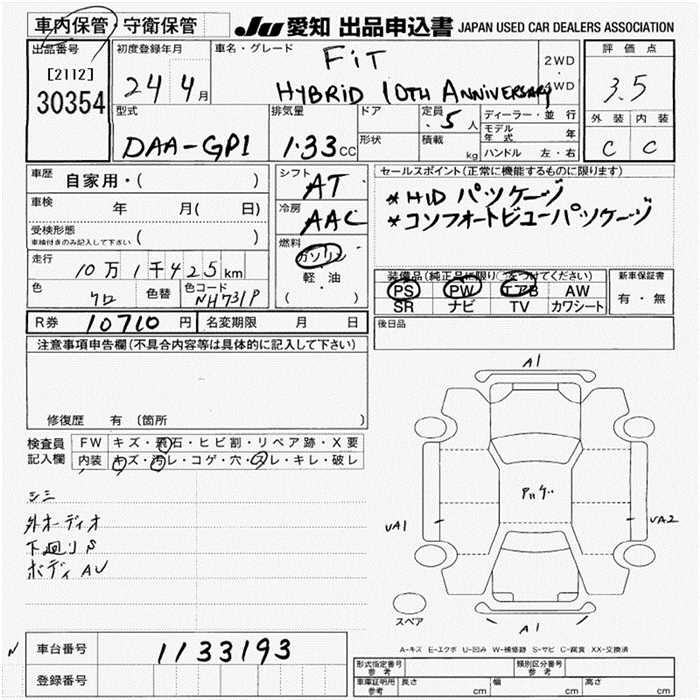 車内保管/守衛保管 JU 愛知 出品申込書 JAPAN USED CAR DEALERS ASSOCIATION
出品番号 初度登録年月 車名・グレード 評価点
[2112] FiT 2WD
30354 24 4月 HYBRID 10TH ANNIVERSARY 4WD 3.5
型式 排気量 ドア 定員 ディーラー・並行 外装 内装
5人 モデル年式 年
DAA-GP1 1.33CC 形状 積載 kg ハンドル 左・右 C C
車歴 自家用・( ) シフト AT セールスポイント(正常に機能するものに限ります)
車検 年 月( 日) 冷房 AAC *HID パッケージ
受検形態 ( ) *コンフォートビューパッケージ
車検付きのみ記入して下さい
燃料 ガソリン
走行 10万1千425km 軽・油
( )
装備品(純正品に限り○をつけてください) 新車保証書
色 クロ 色替 色コード NH731P PS PW エアB AW 有・無
SR ナビ TV カワシート
R券 10710円 名変期限 月 日 後日品
注意事項申告欄(不具合内容等は具体的に記入して下さい)
修復歴 有 (箇所 )
検査員 FW キズ・飛石・ヒビ割・リペア跡・X要
記入欄 内装 キズ・汚レ・コゲ・穴・スレ・キレ・破レ
シミ
外オーディオ
下廻りS
ボディAU
A1
UA1 UA2
A1
スペア
A-キズ E-エクボ U-凹み W-補修跡 S-サビ C-腐食 XX-交換済
N 車台番号 1133193
登録番号
形式指定番号 参考 類別区分番号 参考
車庫証明用 参考 長さ cm 幅 cm 高さ cm